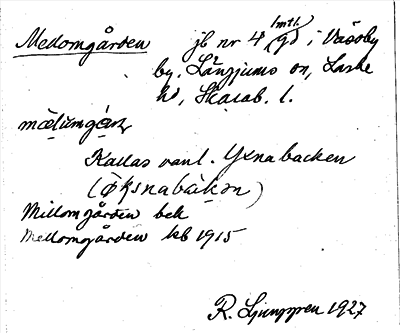 Mellomgården jb nr 4 (mtl. gd) i Väsby
by. Långjums sn, Laske
hd, Skarab. l.
mæ̀lùmgárṇ
Kallas vanl. Yxnabacken
(ø̀ksnabàkən)
Millomgården bek
Mellomgården kb 1915
R. Ljunggren 1927